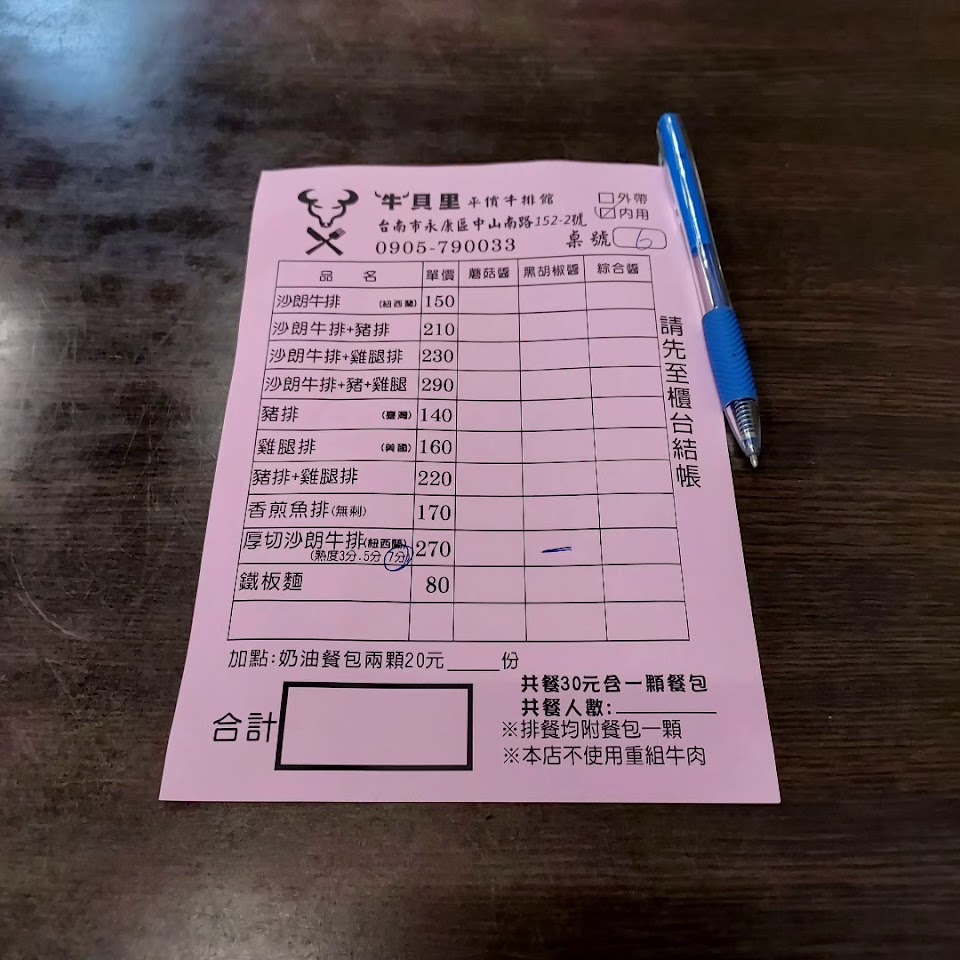 牛貝里 平價牛排館
□外帶
☑內用
台南市永康區中山南路152-2號
0905-790033
桌號 6
品名 單價 蘑菇醬 黑胡椒醬 綜合醬
沙朗牛排 (紐西蘭) 150
沙朗牛排+豬排 210
沙朗牛排+雞腿排 230
沙朗牛排+豬+雞腿 290
豬排 (臺灣) 140
雞腿排 (美國) 160
豬排+雞腿排 220
香煎魚排(無刺) 170
厚切沙朗牛排(紐西蘭) 270 一
(熟度3分.5分 7分)
鐵板麵 80
請先至櫃台結帳
加點:奶油餐包兩顆20元_____份
共餐30元含一顆餐包
共餐人數:_________
合計
※排餐均附餐包一顆
※本店不使用重組牛肉